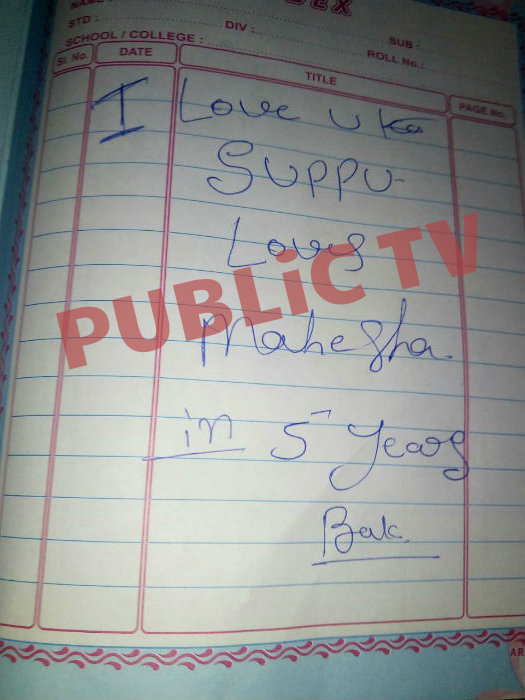 DEX
STD :
DIV :
SUB :
SCHOOL / COLLEGE :
ROLL No.:
Sr. No.
DATE
TITLE
PAGE No.
I Love u
Suppu
Loves
Mahesha.
in 5 Years
Bak
PUBLiC TV